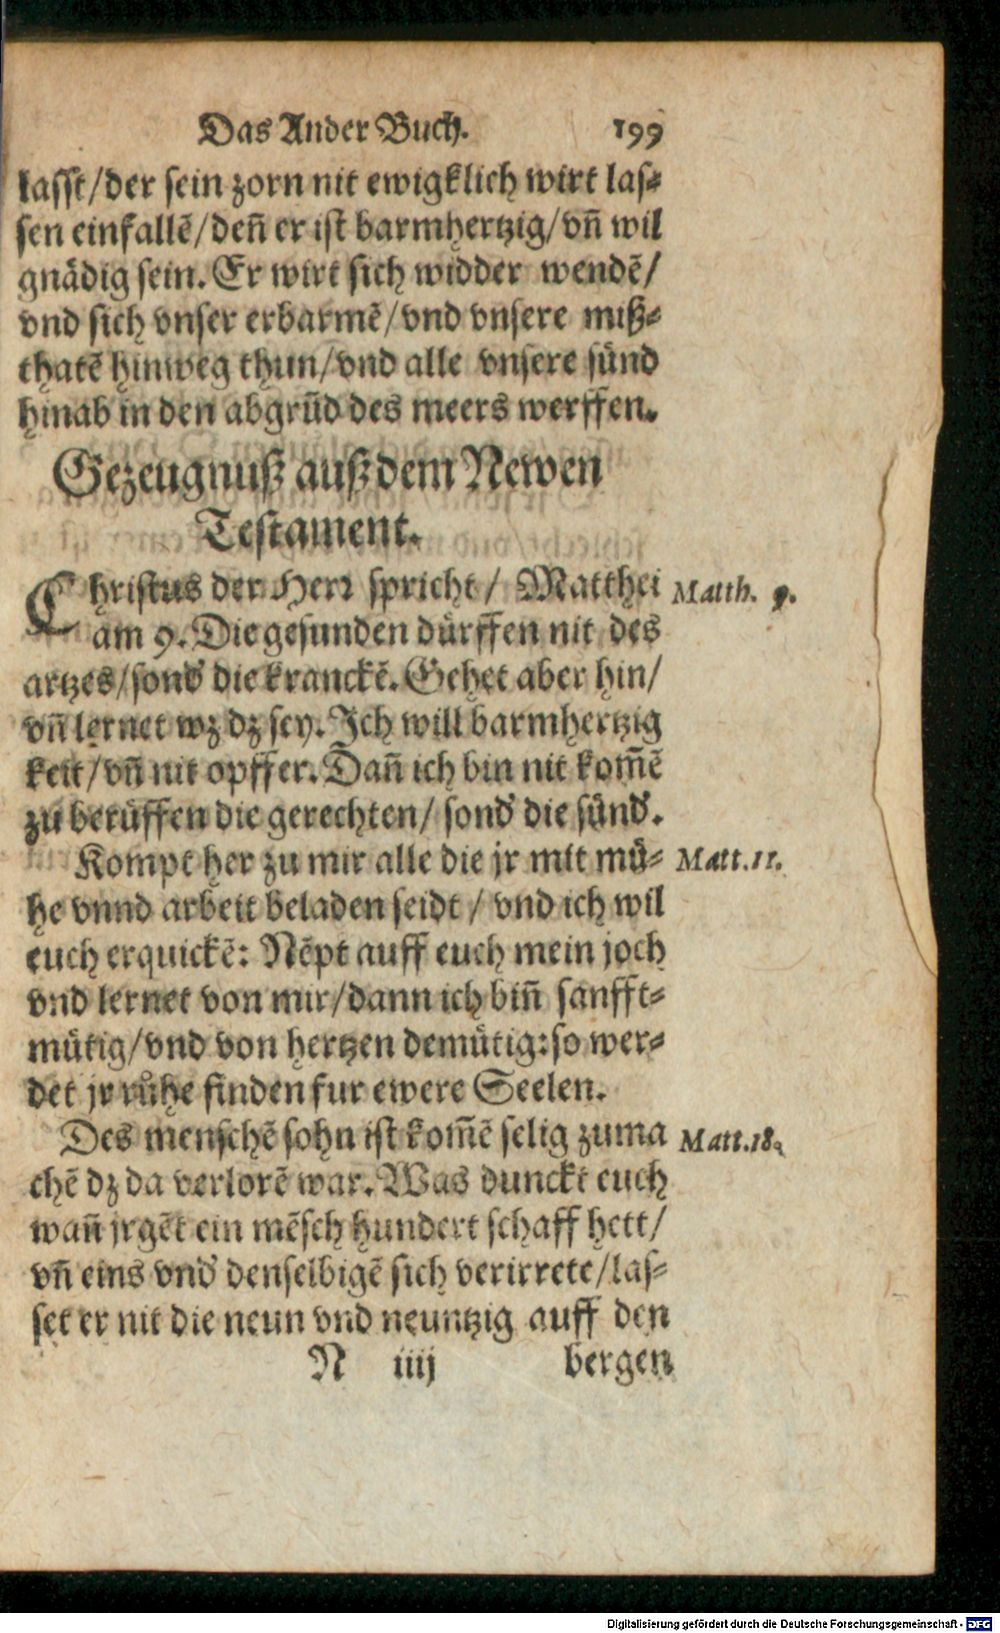 Das Ander Buch. 199
lasst/der sein zorn nit ewigklich wirt las⸗
sen einfallē/deñ er ist barmhertzig/vñ wil
gnädig sein. Er wirt sich widder wendē/
vnd sich vnser erbarmē/vnd vnsere miß⸗
thatē hinweg thun/vnd alle vnsere sünd
hinab in den abgrūd des meers werffen.
Gezeugnuß auß dem Newen
Testament.
Christus der Herr spricht/ Matthei Matth. 9.
am 9. Die gesunden dürffen nit des
artzes/sond' die kranckē. Gehet aber hin/
vñ lernet wz dz sey. Ich will barmhertzig
keit/vñ nit opffer. Dañ ich bin nit kom̄ē
zu berüffen die gerechten/ sond' die sünd'.
Kompt her zu mir alle die jr mit mü⸗ Matt.11.
he vnnd arbeit beladen seidt / vnd ich wil
euch erquickē: Nēpt auff euch mein joch
vnd lernet von mir/dann ich biñ sanfft⸗
mütig/vnd von hertzen demütig:so wer⸗
det jr růhe finden fur ewere Seelen.
Des menschē sohn ist kom̄ē selig zuma Matt.18.
chē dz da verlorē war. Was dunckt euch
wañ jrgēt ein mēsch hundert schaff hett/
vñ eins vnd' denselbigē sich verirrete/las⸗
set er nit die neun vnd neuntzig auff den
N iiij bergen
Digitalisierung gefördert durch die Deutsche Forschungsgemeinschaft - DFG